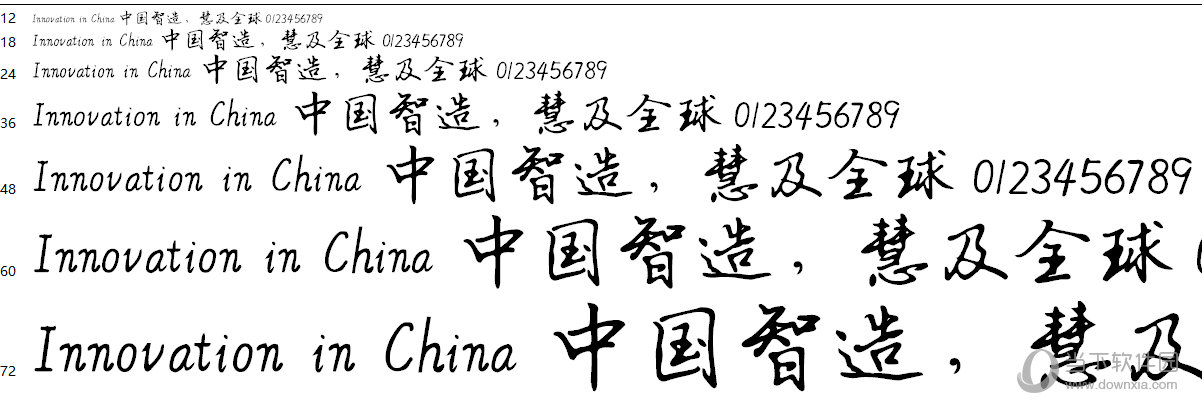 12 Innovation in China 中国智造，慧及全球 0123456789
18 Innovation in China 中国智造，慧及全球 0123456789
24 Innovation in China 中国智造，慧及全球 0123456789
36 Innovation in China 中国智造，慧及全球 0123456789
48 Innovation in China 中国智造，慧及全球 0123456789
60 Innovation in China 中国智造，慧及全球
72 Innovation in China 中国智造，慧及
当下软件园
www.downxia.com